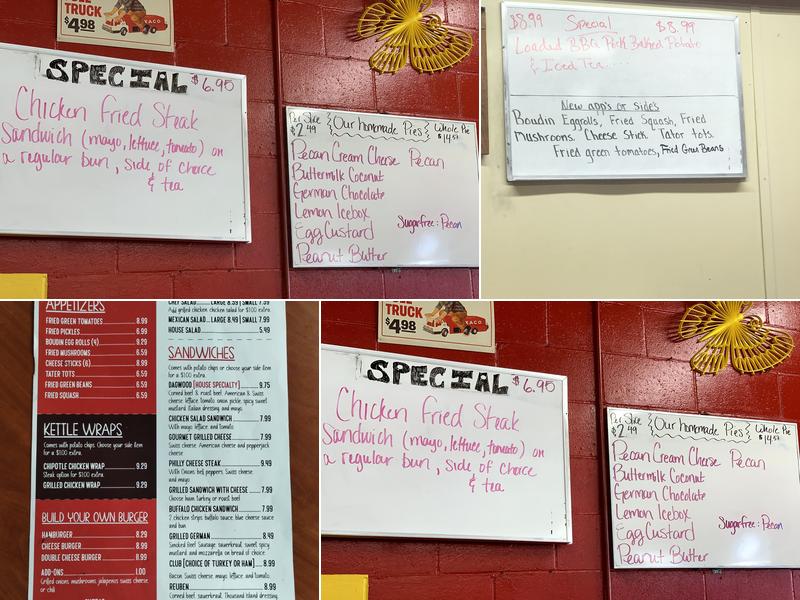 TRUCK
$4.98
TACO
SPECIAL $6.95
Chicken Fried Steak
Sandwich (mayo, lettuce, tomato) on
a regular bun, side of choice
& tea
Per Slice
$2.49
{Our homemade Pies}
Whole Pie
$14.50
Pecan Cream Cheese Pecan
Buttermilk Coconut
German Chocolate
Lemon Icebox
Egg Custard
Sugarfree: Pecan
Peanut Butter
$8.99 Special $8.99
Loaded BBQ Pork Baked Potato
& Iced Tea....
New app's or side's
Boudin Eggrolls, Fried Squash, Fried
Mushrooms. Cheese Stick. Tator tots.
Fried green tomatoes, Fried Green Beans
APPETIZERS
FRIED GREEN TOMATOES 8.99
FRIED PICKLES 6.99
BOUDIN EGG ROLLS (4) 9.29
FRIED MUSHROOMS 6.59
CHEESE STICKS (6) 8.99
TATER TOTS 6.59
FRIED GREEN BEANS 6.59
FRIED SQUASH 6.59
KETTLE WRAPS
Comes with potato chips. Choose your side item
for a $1.00 extra.
CHIPOTLE CHICKEN WRAP 9.29
Steak option for $1.00 extra.
GRILLED CHICKEN WRAP 9.29
BUILD YOUR OWN BURGER
HAMBURGER 8.29
CHEESE BURGER 8.99
DOUBLE CHEESE BURGER 11.99
ADD-ONS 1.00
Grilled onions, mushrooms, jalapenos, swiss cheese,
or chili
CHEF SALAD LARGE 8.59 | SMALL 7.59
Add grilled chicken, chicken salad for $1.00 extra
MEXICAN SALAD LARGE 8.49 | SMALL 7.99
HOUSE SALAD 5.49
SANDWICHES
Comes with potato chips. Choose your side item
for a $1.00 extra.
DAGWOOD [HOUSE SPECIALTY] 9.75
Corned beef & roast beef, American & Swiss
cheese, lettuce, tomato, onion, pickle, spicy sweet
mustard, italian dressing, and mayo
CHICKEN SALAD SANDWICH 7.99
With mayo, lettuce and tomato
GOURMET GRILLED CHEESE 7.99
Swiss cheese, American cheese and pepperjack
cheese
PHILLY CHEESE STEAK 9.49
With Onions, bell peppers, Swiss cheese,
and mayo
GRILLED SANDWICH WITH CHEESE 7.99
Choose ham, turkey or roast beef
BUFFALO CHICKEN SANDWICH 7.99
2 chicken strips, buffalo sauce, blue cheese sauce
and bun
GRILLED GERMAN 8.49
Smoked Beef Sausage, sauerkraut, sweet spicy
mustard, and mozzarella on bread of choice
CLUB [CHOICE OF TURKEY OR HAM] 8.99
Bacon, Swiss cheese, mayo, lettuce, and tomato.
REUBEN 8.99
Corned beef, sauerkraut, Thousand Island dressing,
TRUCK
$4.98
TACO
SPECIAL $6.95
Chicken Fried Steak
Sandwich (mayo, lettuce, tomato) on
a regular bun, side of choice
& tea
Per Slice
$2.49
{Our homemade Pies}
Whole Pie
$14.50
Pecan Cream Cheese Pecan
Buttermilk Coconut
German Chocolate
Lemon Icebox
Egg Custard
Sugarfree: Pecan
Peanut Butter